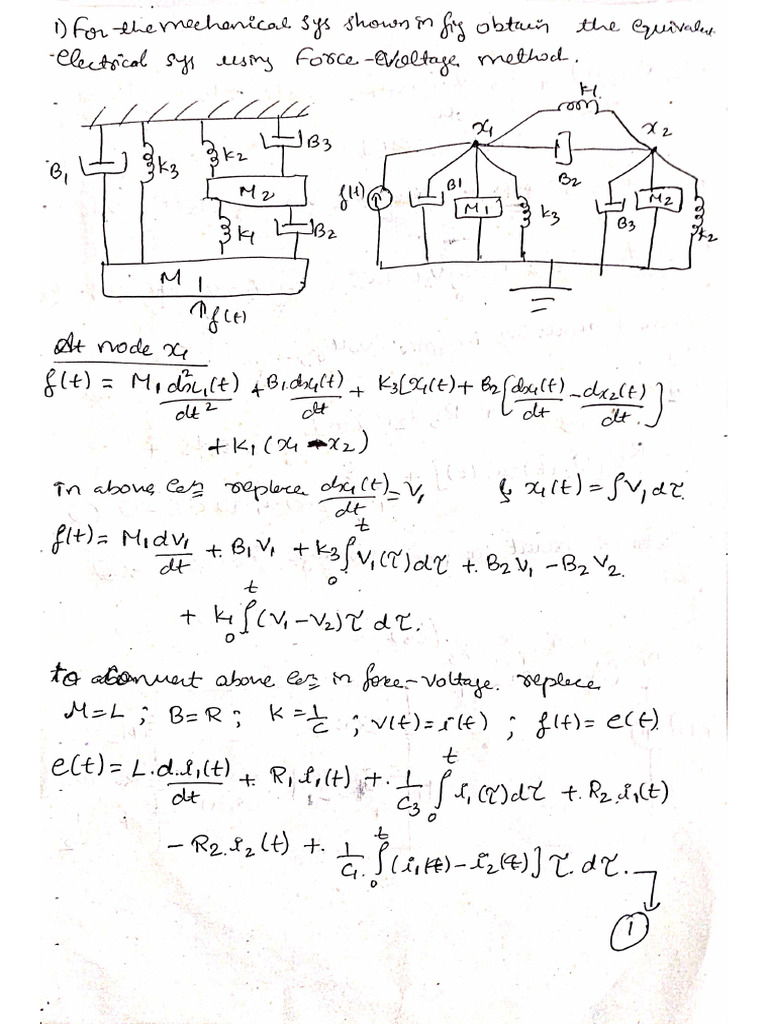 1) For the mechanical sys shown in fig obtain the equivalent
Electrical sys using Force-Voltage method.
B1
K3
K2
B3
M2
K1
B2
M1
↑f(t)
x1
K1
x2
B2
f(t)
B1
M1
K3
B3
M2
K2
At node x1
f(t) = M1 d²x1(t)/dt² + B1 dx1(t)/dt + K3[x1(t) + B2[dx1(t)/dt - dx2(t)/dt]
+ K1(x1 - x2)
in above eqn replace dx1(t)/dt = V1 & x1(t) = ∫V1 dτ
f(t) = M1 dV1/dt + B1V1 + K3 ∫₀ᵗ V1(τ)dτ + B2V1 - B2V2.
+ K1 ∫₀ᵗ (V1 - V2)τ dτ.
to convert above eqn in force-voltage replace
M=L ; B=R ; K=1/C ; V(t)=i(t) ; f(t)=e(t)
e(t) = L.d.i1(t)/dt + R1i1(t) + 1/C3 ∫₀ᵗ i1(τ)dτ + R2.i1(t)
- R2.i2(t) + 1/C1 ∫₀ᵗ (i1(t) - i2(t)]τ.dτ.
1